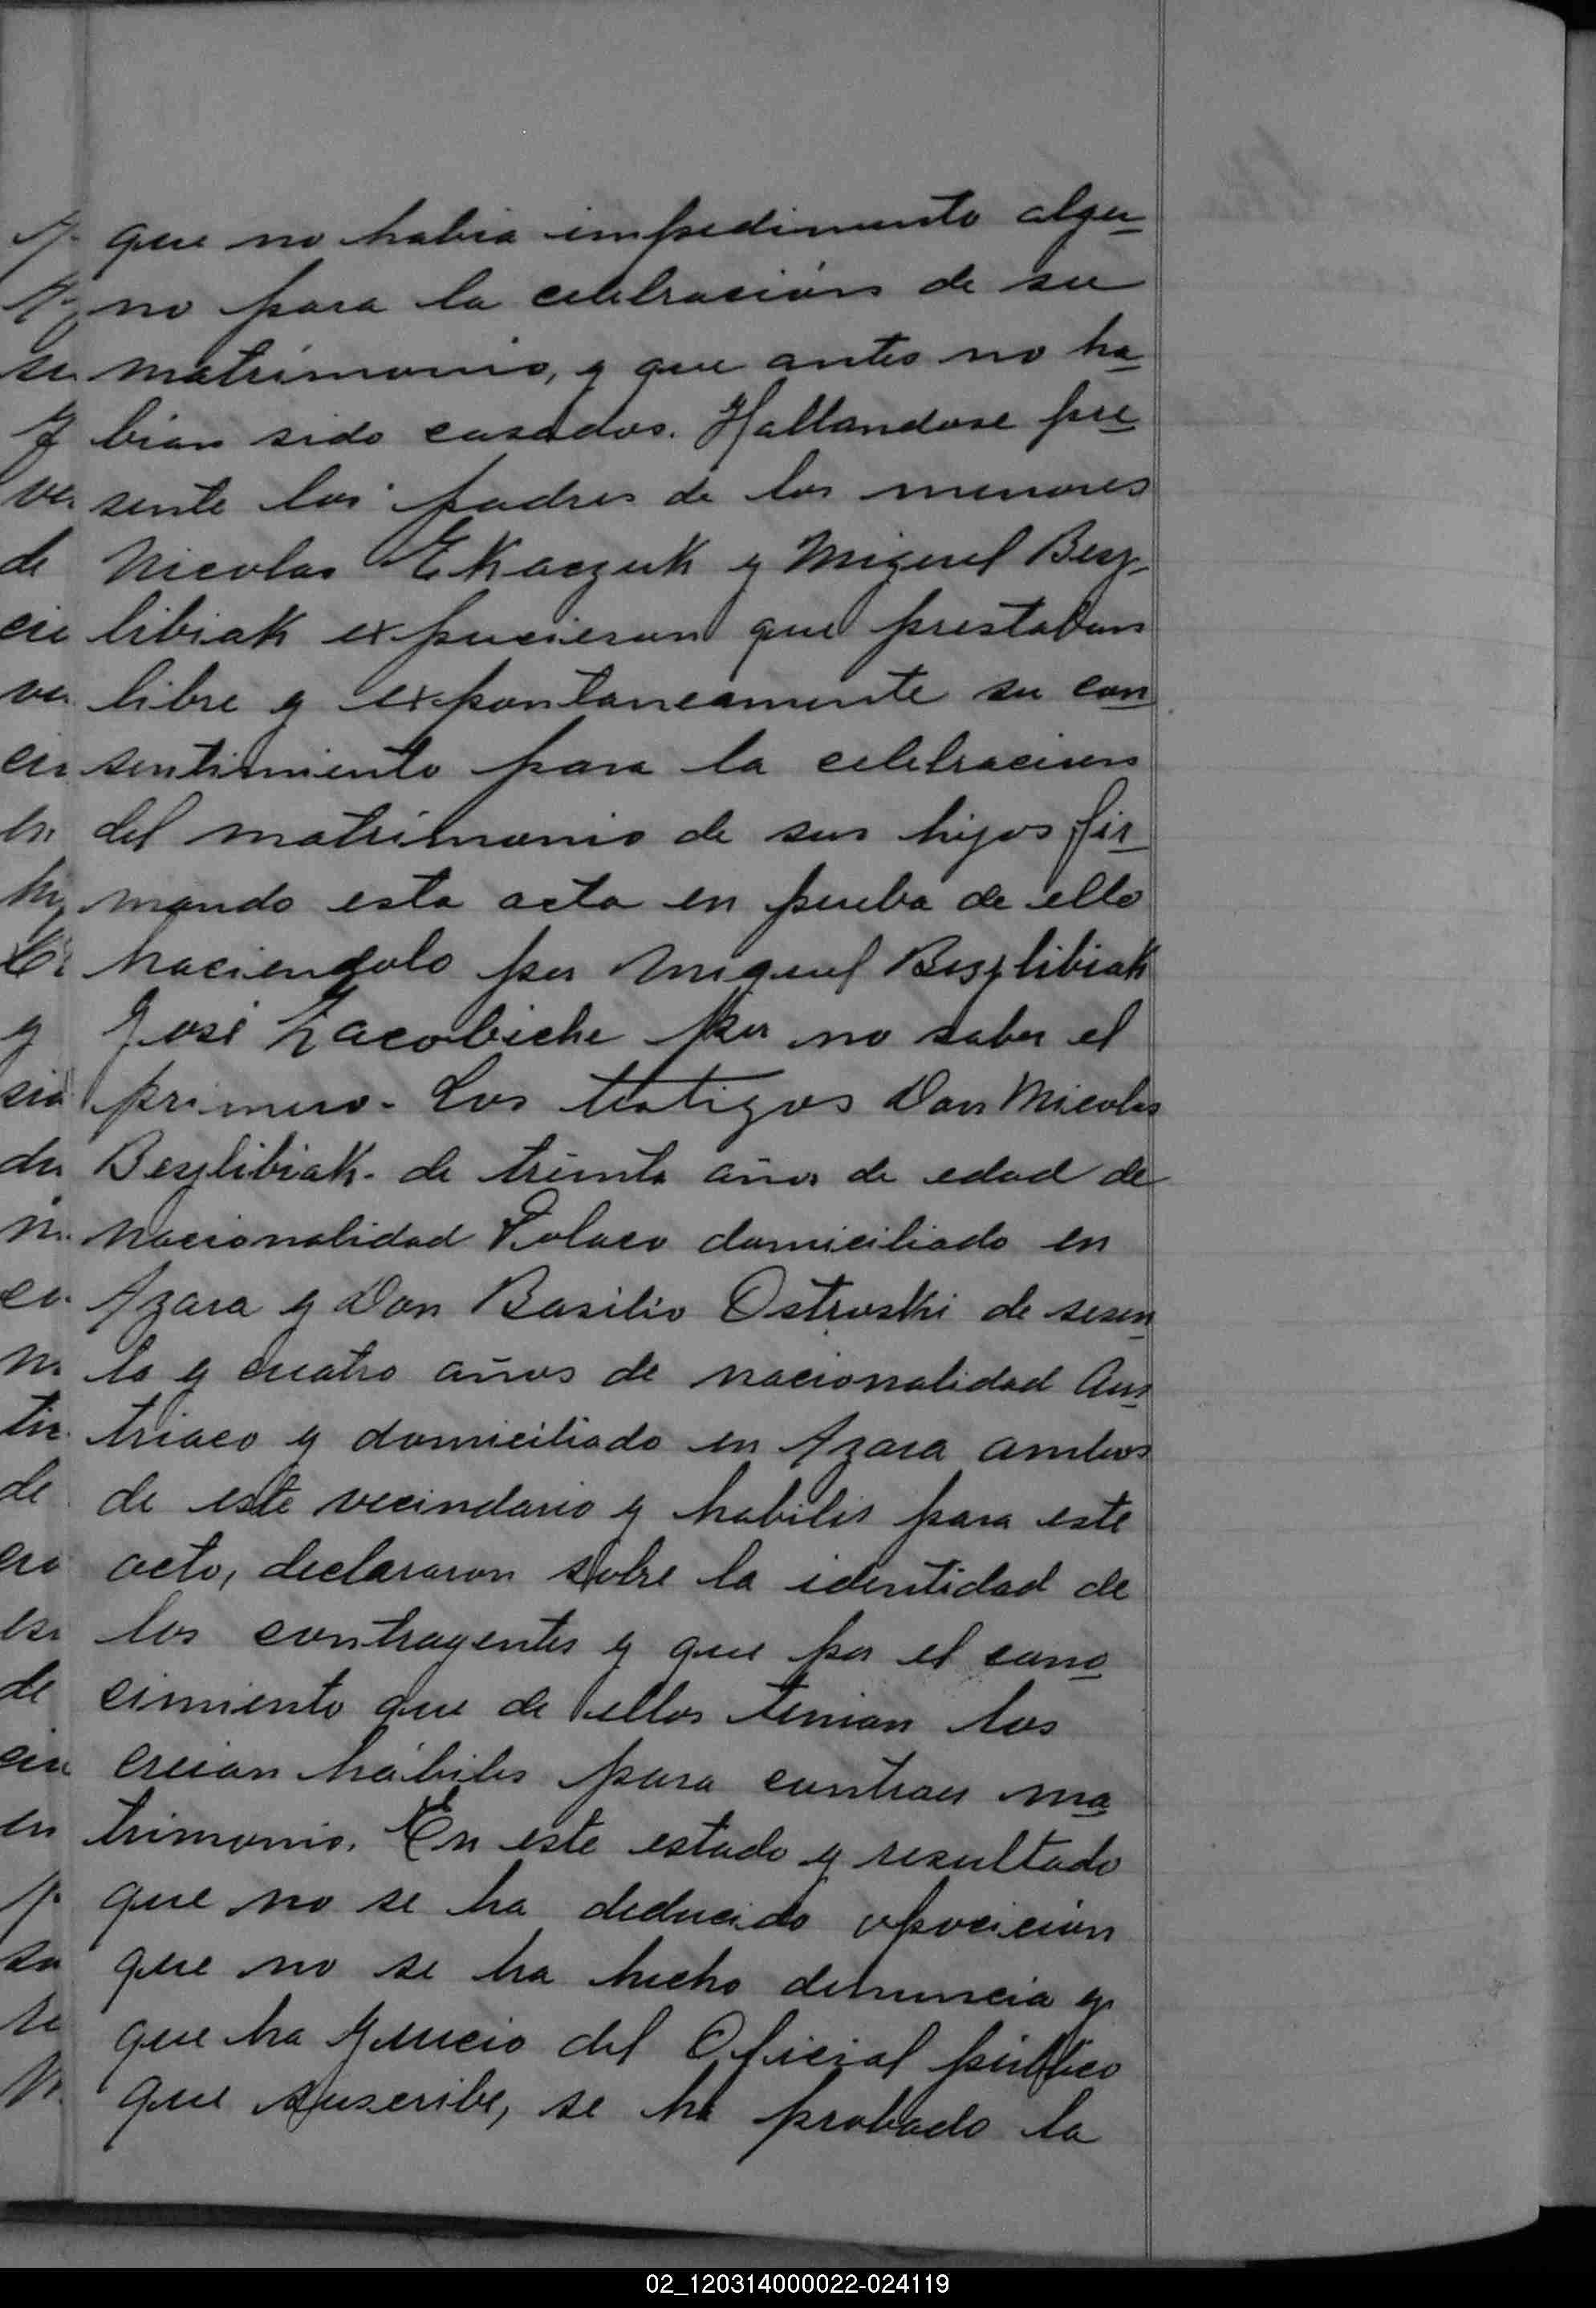 que no habia impedimento algu
no para la celebración de su
matrimonio, y que antes no ha
bian sido casados. Hallandose pre
sente los padres de los menores
Nicolas Tkaczuk y Miguel Besz
libiak expucieron que prestaban
libre y expontaneamente su con
sentimiento para la celebracion
del matrimonio de sus hijos fir
mando esta acta en prueba de ello
haciendolo por Miguel Beszlibiak
José Zacobiche por no saber el
primero. Los testigos Don Nicolas
Beszlibiak de treinta años de edad de
nacionalidad Polaco domiciliado en
Azara y Don Basilio Ostroski de sesen
ta y cuatro años de nacionalidad Aus
triaco y domiciliado en Azara ambos
de este vecindario y habiles para este
acto, declararon sobre la identidad de
los contrayentes y que por el cono
cimiento que de ellos tenian los
creian hábiles para contraer ma
trimonio. En este estado y resultado
que no se ha deducido opocición
que no se ha hecho denuncia y
que ha juucio del Oficial público
que suscribe, se ha probado la
02_120314000022-024119